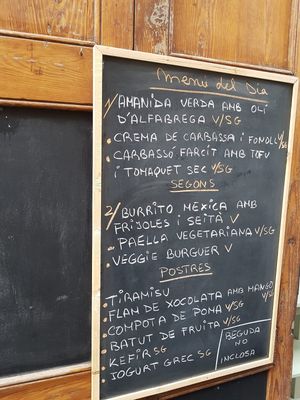 Menu del Dia
1/ AMANIDA VERDA AMB OLI
D'ALFABREGA V/SG
• CREMA DE CARBASSA I FONOLL V/SG
• CARBASSÓ FARCIT AMB TOFU
I TOMAQUET SEC V/SG
SEGONS
2/ BURRITO MEXICA AMB
FRIJOLES I SEITÀ V
• PAELLA VEGETARIANA V/SG
• VEGGIE BURGUER V
POSTRES
TIRAMISU
• FLAN DE XOCOLATA AMB MANGO V/SG
• COMPOTA DE POMA V/SG
• BATUT DE FRUITA V/SG
• KEFIR SG
• IOGURT GREC SG
BEGUDA
NO
INCLOSA